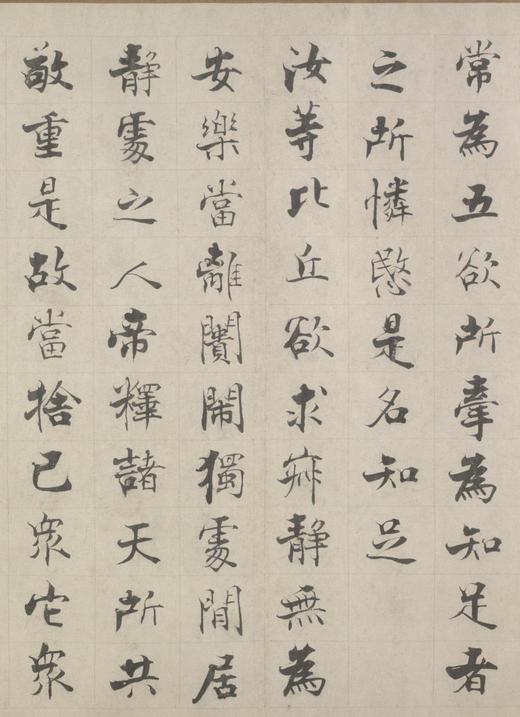 常為五欲所牽為知足者
之所憐愍是名知足
汝等比丘欲求寂静無為
安樂當離闠閙獨處閒居
静處之人帝釋諸天所共
敬重是故當捨已衆它衆